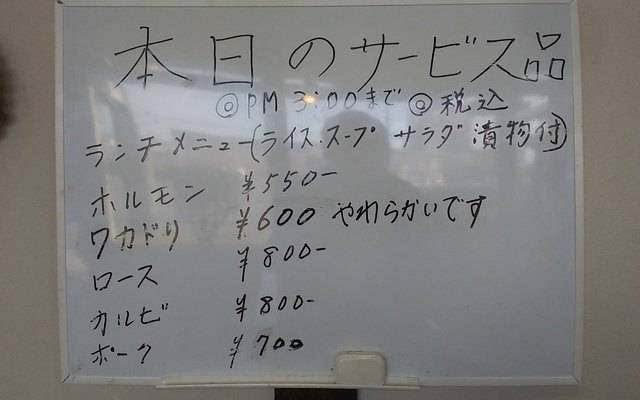 本日のサービス品
◎PM 3:00まで ◎税込
ランチメニュー(ライス.スープ サラダ 漬物付)
ホルモン ¥550-
ワカドリ ¥600 やわらかいです
ロース ¥800-
カルビ ¥800-
ポーク ¥700